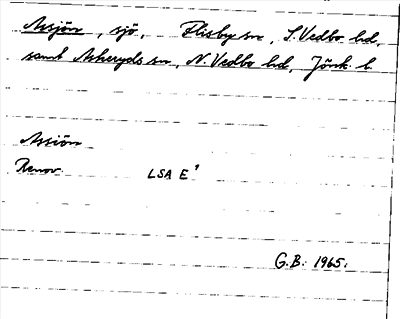 Assjön, sjö, Flisby sn, S. Vedbo hd,
samt Askeryds sn, N. Vedbo hd, Jönk. l.
Assiön
Renov. LSA E¹
G.B. 1965.